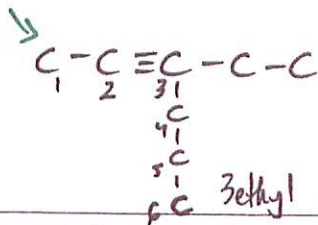 C - C ≡ C - C - C
1 2 3
4 C
5 C
6 C 3ethyl